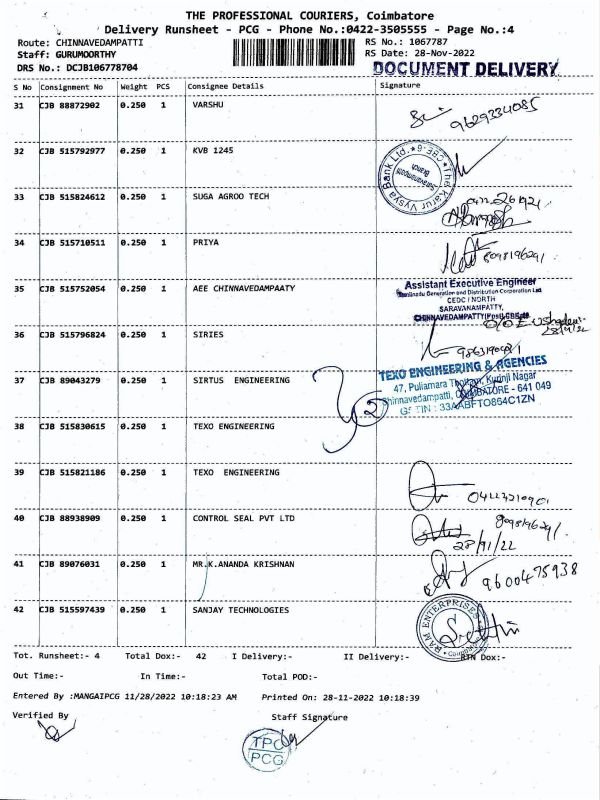 THE PROFESSIONAL COURIERS, Coimbatore
Delivery Runsheet - PCG - Phone No.:0422-3505555 - Page No.:4
Route: CHINNAVEDAMPATTI RS No.: 1067787
Staff: GURUMOORTHY RS Date: 28-Nov-2022
DRS No.: DCJB106778704 DOCUMENT DELIVERY
S No Consignment No Weight PCS Consignee Details Signature
31 CJB 88872902 0.250 1 VARSHU
9629334085
32 CJB 515792977 0.250 1 KVB 1245
The Karur Vysya Bank Ltd. CBE-6
Saravanampatti Branch
33 CJB 515824612 0.250 1 SUGA AGROO TECH
34 CJB 515710511 0.250 1 PRIYA
8098196291
35 CJB 515752054 0.250 1 AEE CHINNAVEDAMPAATY
Assistant Executive Engineer
Tamilnadu Generation and Distribution Corporation Ltd
CEDC / NORTH
SARAVANAMPATTY,
CHINNAVEDAMPATTY(Post),CBE
36 CJB 515796824 0.250 1 SIRIES
37 CJB 89043279 0.250 1 SIRTUS ENGINEERING
TEXO ENGINEERING & AGENCIES
47, Puliamara Thottam, Kurinji Nagar
Chinnavedampatti, COIMBATORE - 641 049
GSTIN : 33AABFTO864C1ZN
2
38 CJB 515830615 0.250 1 TEXO ENGINEERING
39 CJB 515821186 0.250 1 TEXO ENGINEERING
40 CJB 88938909 0.250 1 CONTROL SEAL PVT LTD
8098196291
28/11/22
41 CJB 89076031 0.250 1 MR.K.ANANDA KRISHNAN
9600475938
42 CJB 515597439 0.250 1 SANJAY TECHNOLOGIES
RAM ENTERPRISES
Tot. Runsheet:- 4 Total Dox:- 42 I Delivery:- II Delivery:- RTN Dox:-
Out Time:- In Time:- Total POD:-
Entered By :MANGAIPCG 11/28/2022 10:18:23 AM Printed On: 28-11-2022 10:18:39
Verified By Staff Signature
TPC
PCG